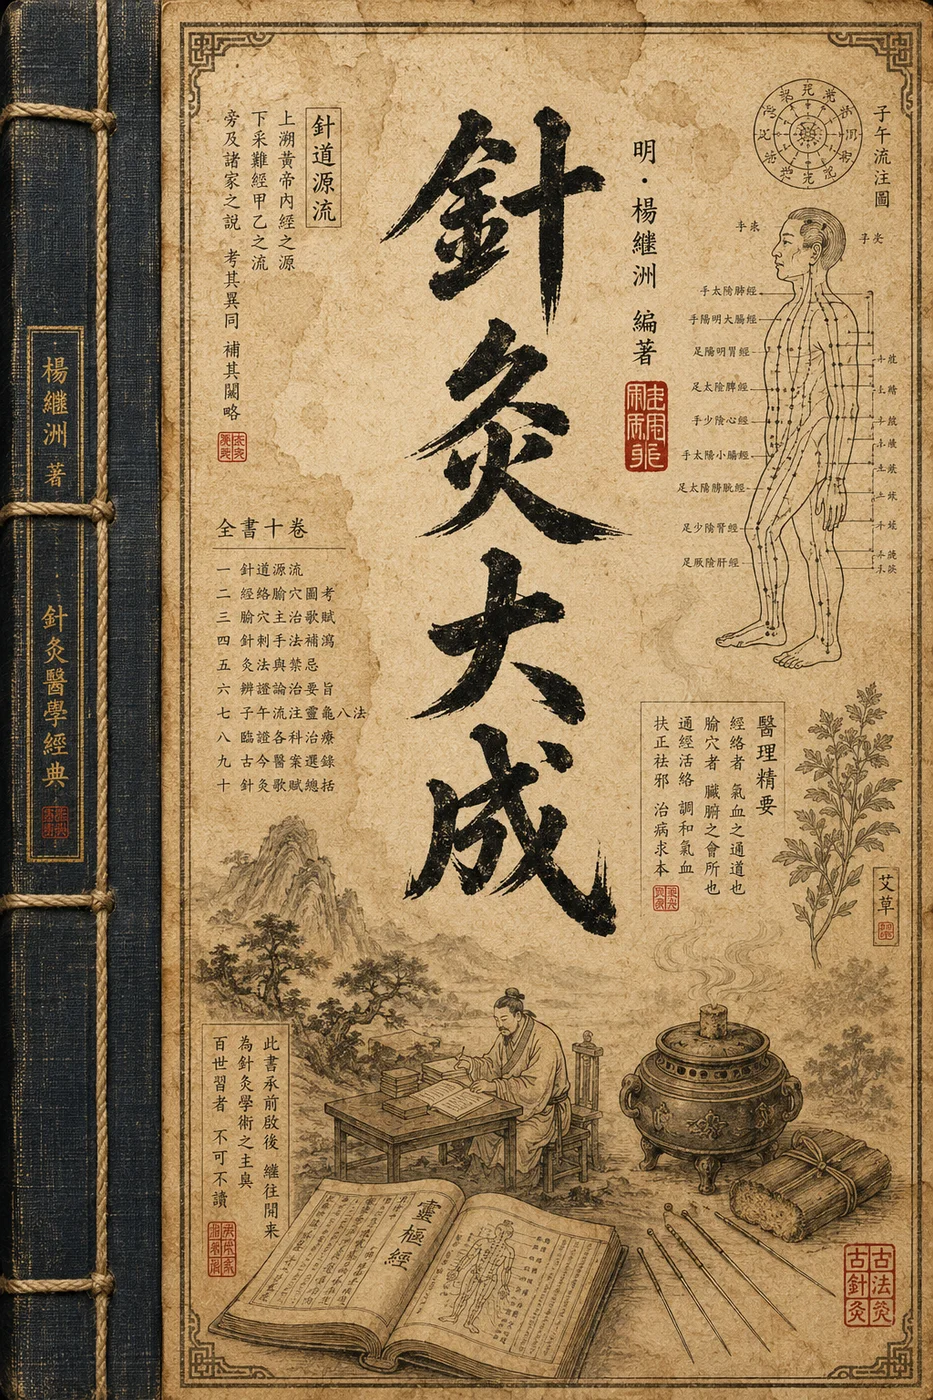 針灸大成
明・楊繼洲 編著
子午流注圖
手太陽肺經
手陽明大腸經
足陽明胃經
足太陰脾經
手少陰心經
手太陽小腸經
足太陽膀胱經
足少陰腎經
足厥陰肝經
針道源流
上溯黃帝內經之源
下采難經甲乙之流
旁及諸家之說 考其異同 補其闕略
全書十卷
一 針道源流
二 經絡穴圖考
三 腧主治歌賦
四 針刺手法補瀉
五 灸法與禁忌
六 辨證論治要旨
七 子午流注靈龜八法
八 臨證各科治療
九 古今醫案選錄
十 針灸歌賦總括
醫理精要
經絡者 氣血之通道也
腧穴者 臟腑之會所也
通經活絡 調和氣血
扶正祛邪 治病求本
艾草
此書承前啟後 繼往開來
為針灸學術之主臬
百世習者 不可不讀
靈樞經
古法
古針灸
楊繼洲 著
針灸醫學經典